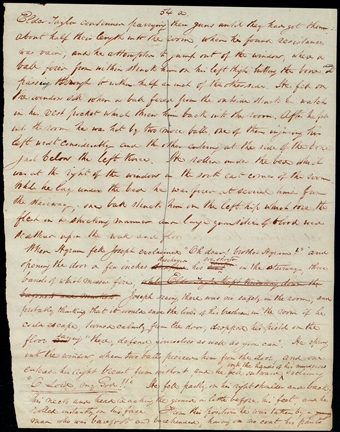 54 a
Elder Taylor continued parrying their guns until they had got them
about half their length into the room, when he found resistance
was vain, and he attempted to jump out of the window, when a
ball fired from within struck him on his left thigh, hitting the bone &
passing through to within half an inch of the other side. He fell on
the window sill when a ball fired from the outside struck his watch
in his vest pocket which threw him back into the room. After he fell
into the room he was hit by two more balls, one of them injuring his
left wrist considerably and the other entering at the side of the bone
just below the left knee. He rolled under the bed which
was at the right of the window in the south east corner of the room
While he lay under the bed he was fired at several times from
the stairway; one ball struck him on the left hip which tore the
flesh in a shocking manner and large quantities of blood
upon the wall and floor
When Hyrum fell, Joseph exclaimed "Oh dear, brother Hyrum!" and
opening the door a few inches his in the stairway,
barrels of which missed fire,
Joseph seeing there was no safety in the room, and
probably thinking that it would save the lives of his brethren in the room if he
could escape, turned calmly from the door, dropped his pistol on the
floor saying "there, defend yourselves as well as you can". He sprung
into the window, when two balls pierced him from the door, and one
entered his right breast from without, and he fell
"O Lord my God!!" He fell partly on his right shoulder and back,
his neck and head reaching the ground a little before his feet and he
rolled instantly on his face. From this position he was taken by a young
man who was barefoot and bareheaded, having on no coat his pants